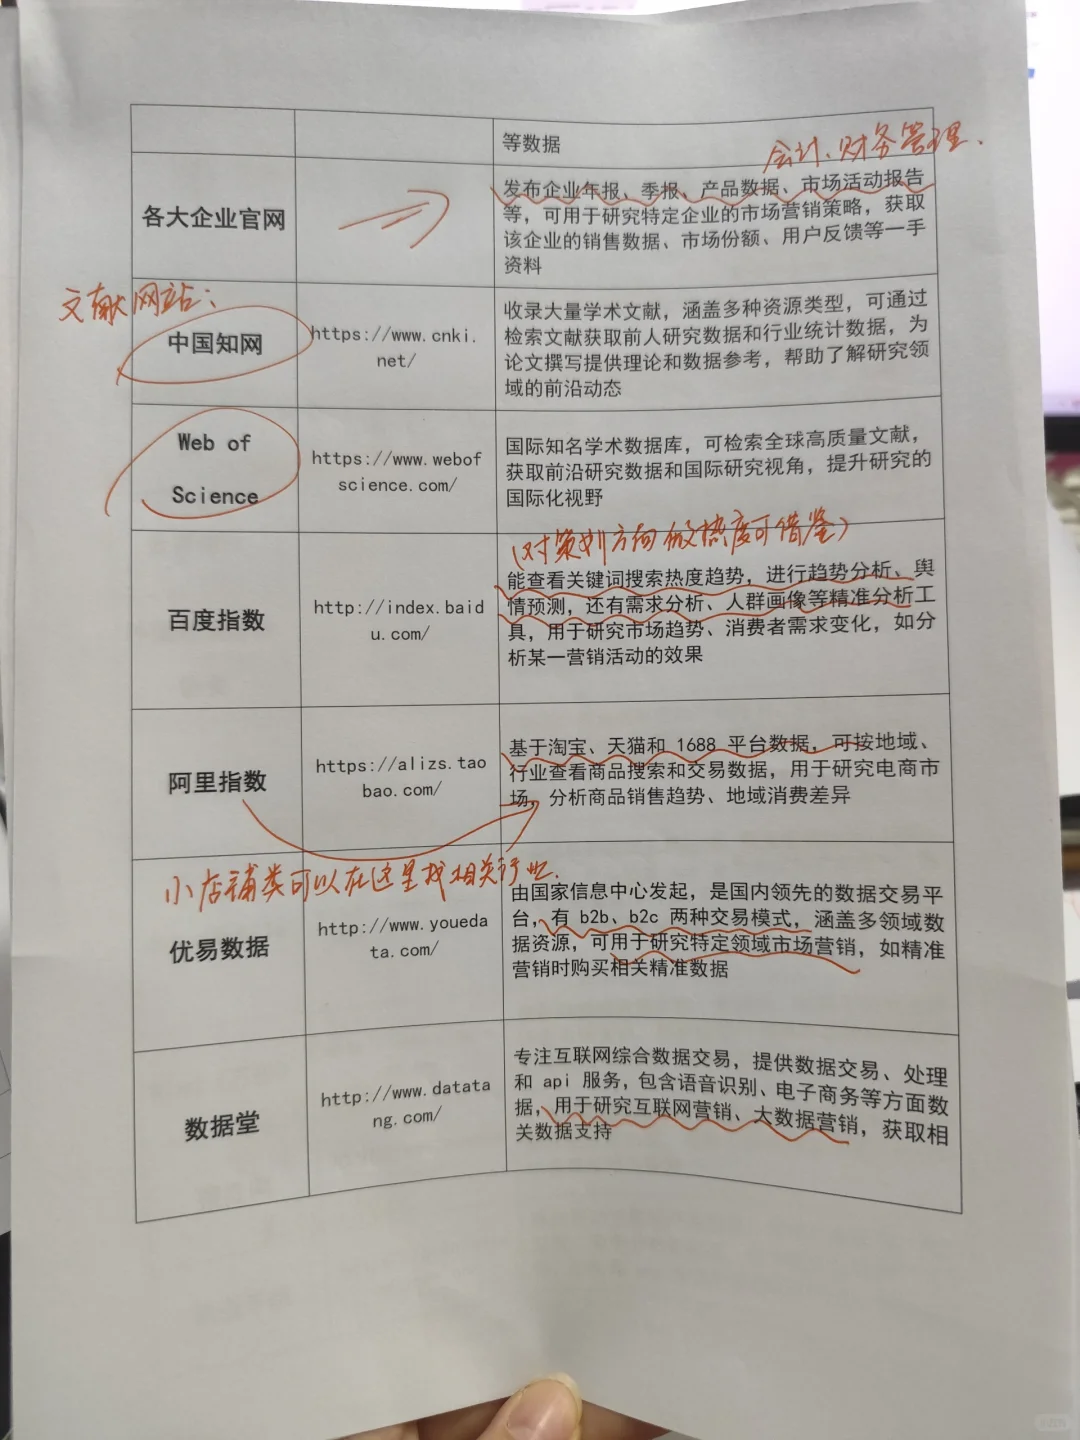 等数据
会计、财务管理.
各大企业官网
发布企业年报、季报、产品数据、市场活动报告
等，可用于研究特定企业的市场营销策略，获取
该企业的销售数据、市场份额、用户反馈等一手
资料
文献网站：
中国知网
https://www.cnki.
net/
收录大量学术文献，涵盖多种资源类型，可通过
检索文献获取前人研究数据和行业统计数据，为
论文撰写提供理论和数据参考，帮助了解研究领
域的前沿动态
Web of
Science
https://www.webof
science.com/
国际知名学术数据库，可检索全球高质量文献，
获取前沿研究数据和国际研究视角，提升研究的
国际化视野
(对策划方向做热度可借鉴)
百度指数
http://index.baid
u.com/
能查看关键词搜索热度趋势，进行趋势分析、舆
情预测，还有需求分析、人群画像等精准分析工
具，用于研究市场趋势、消费者需求变化，如分
析某一营销活动的效果
阿里指数
https://alizs.tao
bao.com/
基于淘宝、天猫和 1688 平台数据，可按地域、
行业查看商品搜索和交易数据，用于研究电商市
场，分析商品销售趋势、地域消费差异
小店铺类可以在这里找相关行业.
优易数据
http://www.youeda
ta.com/
由国家信息中心发起，是国内领先的数据交易平
台，有 b2b、b2c 两种交易模式，涵盖多领域数
据资源，可用于研究特定领域市场营销，如精准
营销时购买相关精准数据
数据堂
http://www.datata
ng.com/
专注互联网综合数据交易，提供数据交易、处理
和 api 服务，包含语音识别、电子商务等方面数
据，用于研究互联网营销、大数据营销，获取相
关数据支持